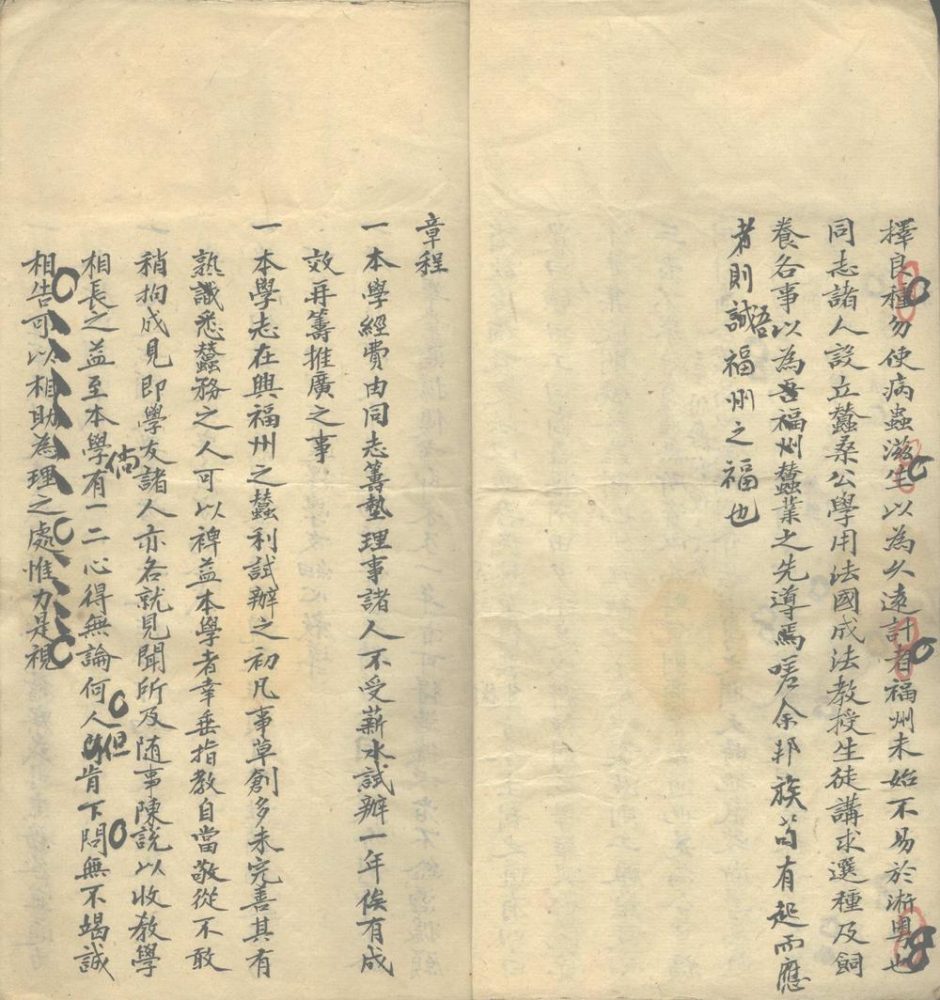 擇良種勿使病蟲滋生以為久遠計者福州未始不易於浙粵也
同志諸人設立蠶桑公學用法國成法教授生徒講求選種及飼
養各事以為吾福州蠶業之先導焉嗟余邦族苟有起而應
者則誠吾福州之福也
章程
一本學經費由同志籌墊理事諸人不受薪水試辦一年俟有成
效再籌推廣之事
一本學志在興福州之蠶利試辦之初凡事草創多未完善其有
熟識悉蠶務之人可以裨益本學者幸垂指教自當敬從不敢
稍拘成見即學友諸人亦各就見聞所及随事陳說以收教學
相長之益至本學倘有一二心得無論何人但肯下問無不竭誠
相告可以相助為理之處惟力是視